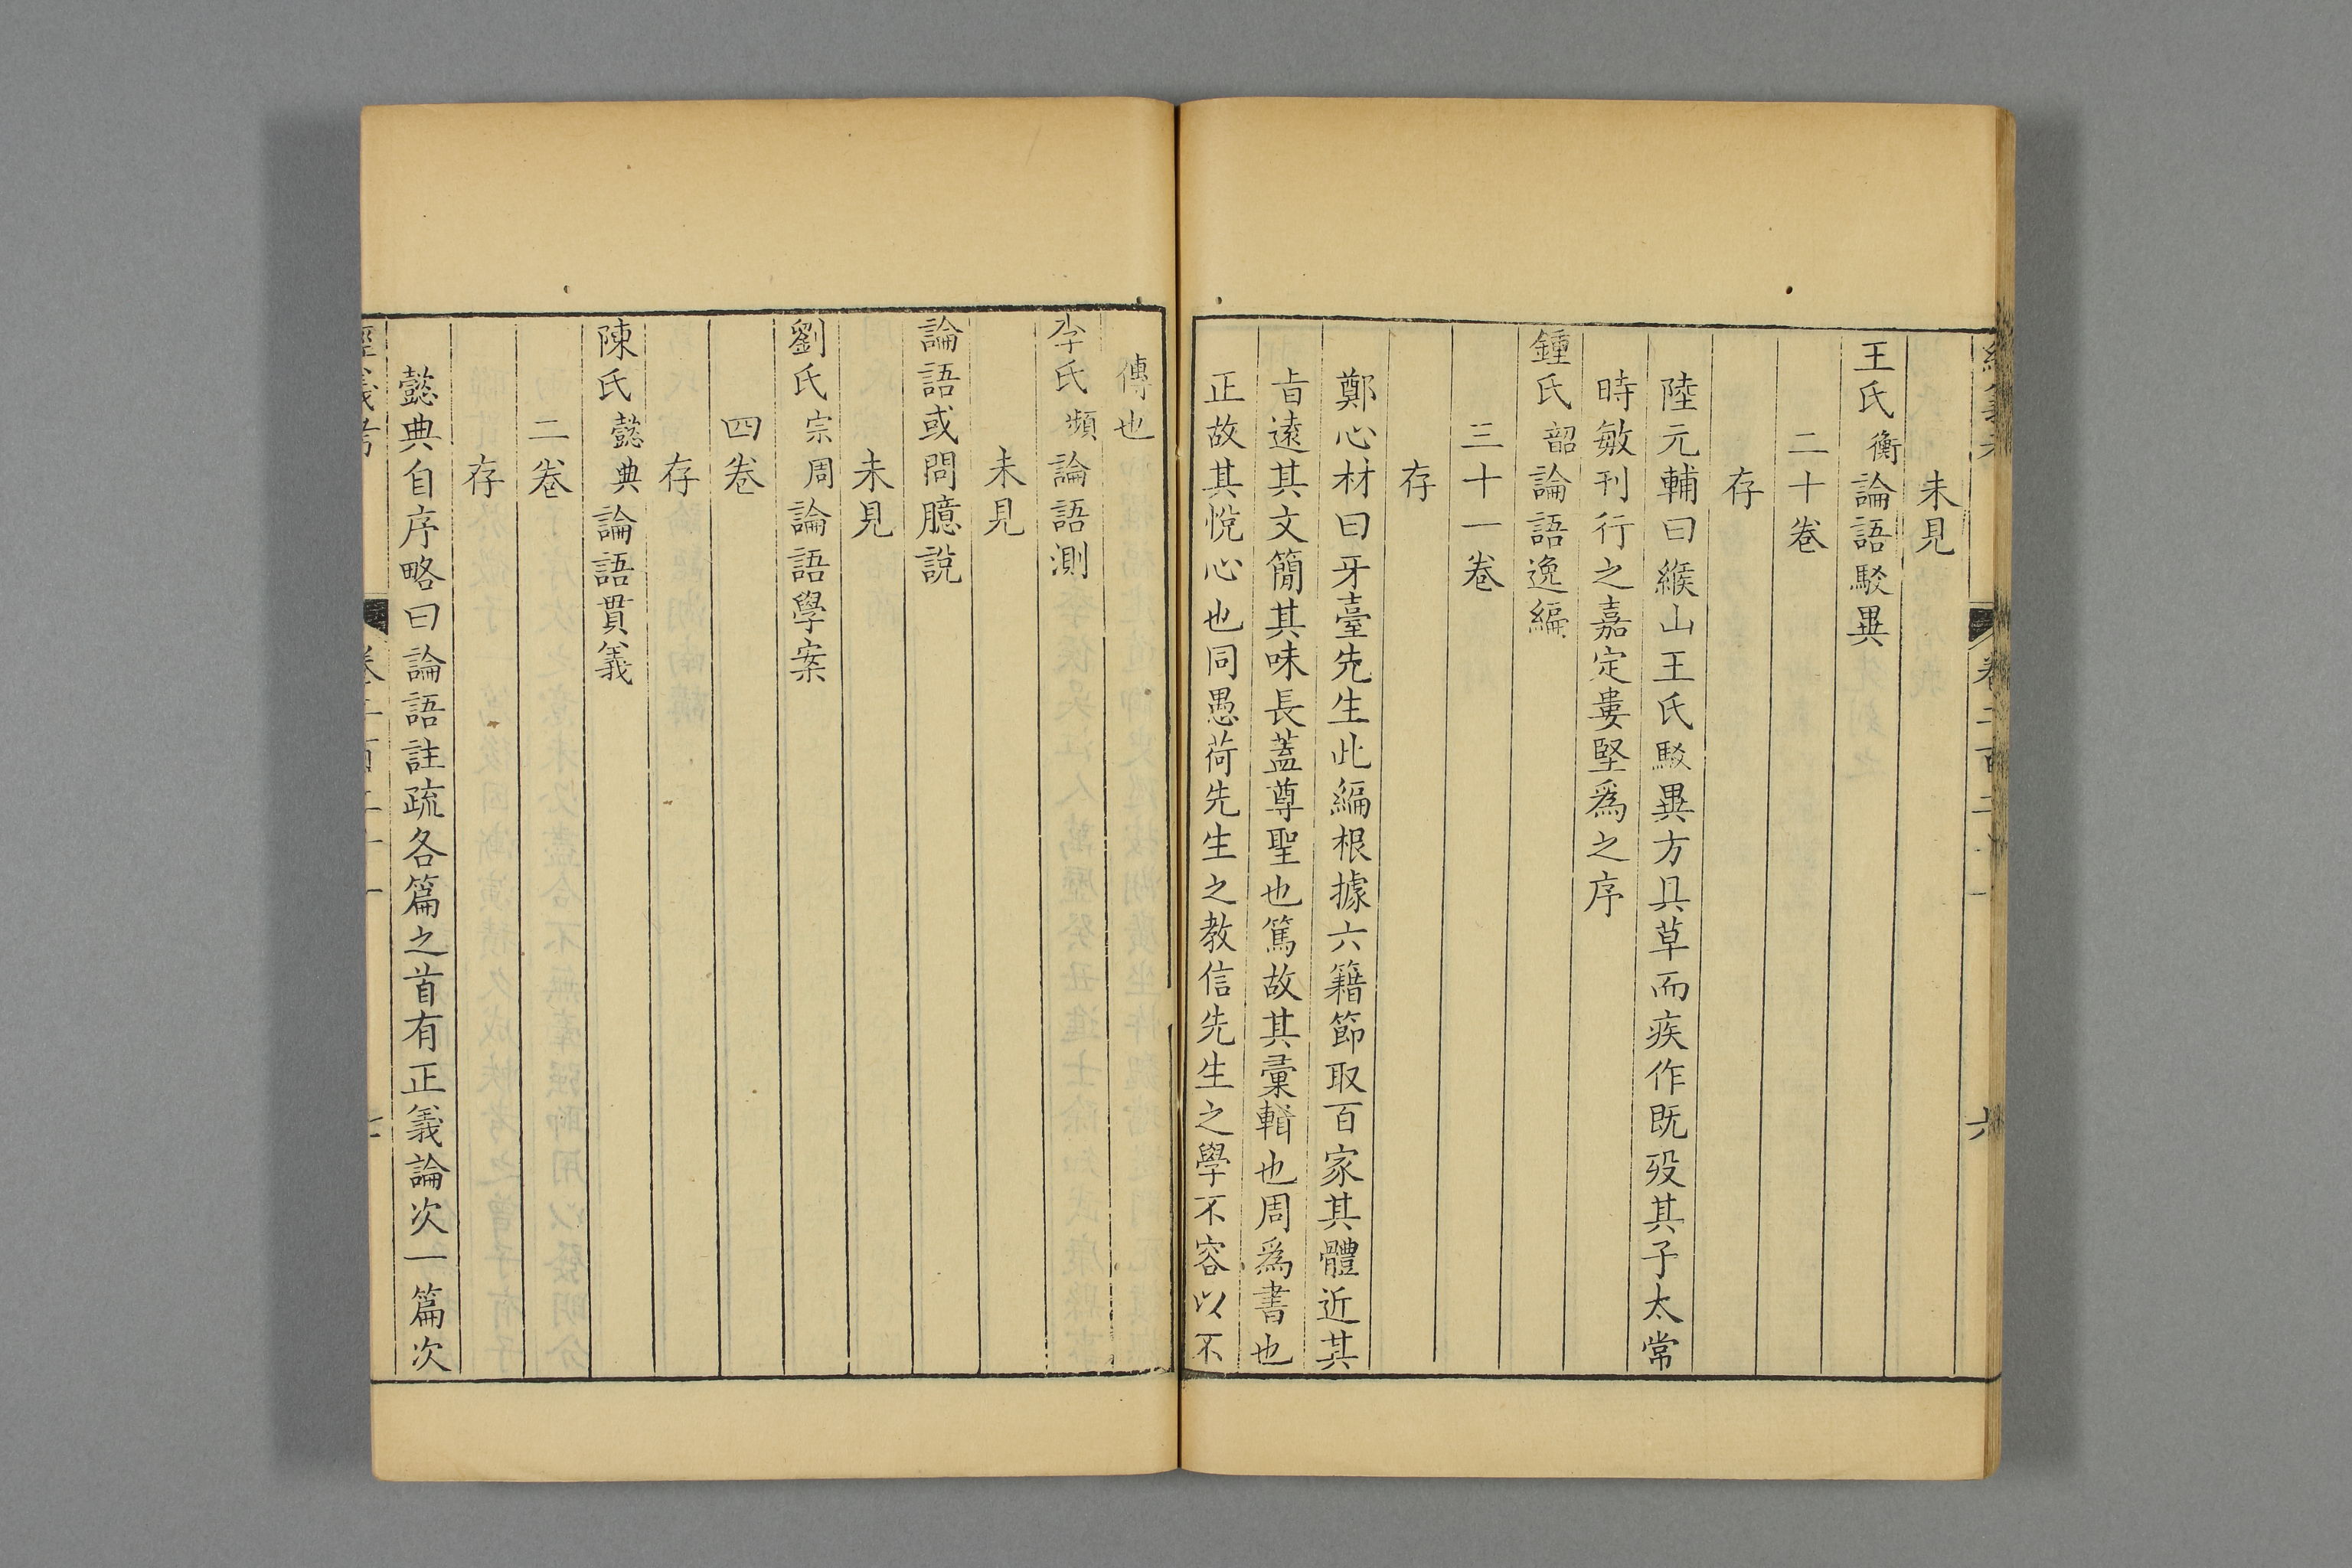 經義考 卷二百二十一 六
未見
王氏衡論語駁異
二十卷
存
陸元輔曰緱山王氏駁異方具草而疾作既歿其子太常
時敏刊行之嘉定婁堅為之序
鍾氏韶論語逸編
三十一卷
存
鄭心材曰牙臺先生此編根據六籍節取百家其體近其
旨遠其文簡其味長蓋尊聖也篤故其彙輯也周為書也
正故其悅心也同愚荷先生之教信先生之學不容以不
傳也
李氏頻論語測
未見
論語或問臆說
未見
劉氏宗周論語學案
四卷
存
陳氏懿典論語貫義
二卷
存
懿典自序略曰論語註疏各篇之首有正義論次一篇次
經義考 卷二百二十一 七